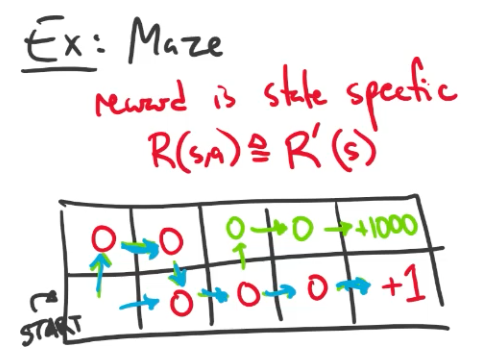 Ex: Maze
reward is state specific
R(s,a) ≜ R'(s)
0 0 0 → 0 → +1000
0 0 0 +1
START